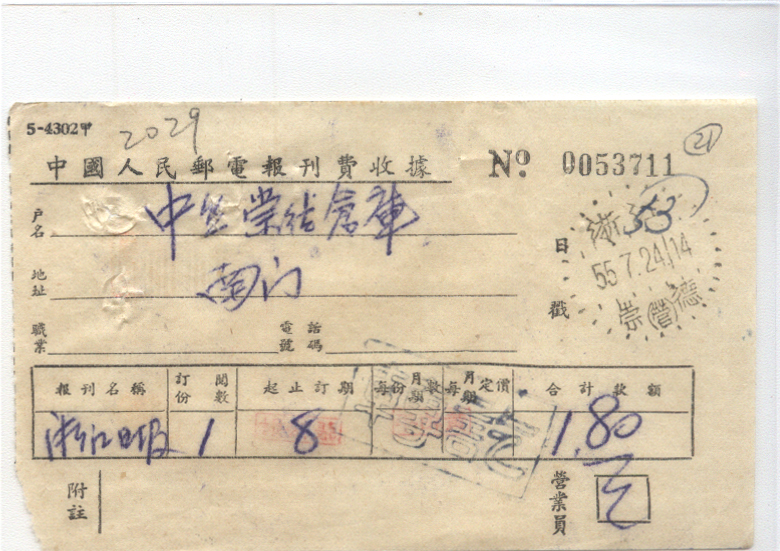 5-4302甲
2029
21
中國人民郵電報刊費收據 Nº 0053711
戶名 倉庫
地址 南门
日戳
浙江
53
55.7.24.14
崇德
(營)
職業 電話號碼
報刊名稱 訂閱份數 起止訂期 每份月期數 每月期定價 合計款額
浙江日报 1 8 1.80
附註 營業員